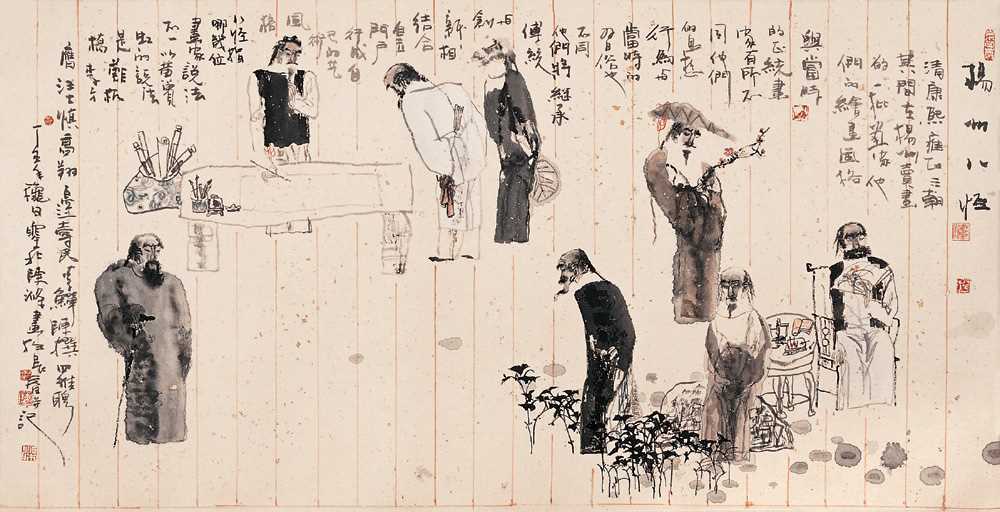 揚州八怪
清康熙雍正三朝
其間在揚州賣畫
的一批畫家他
們的繪畫風格
與當時
的正統畫
家有所不
同他們
的思想
行為與
當時的
習俗也
不同
他們將繼承
傳統
與
創
新相
結合
自立
門戶
行成自
己的藝
術
風
格
八怪指
哪幾位
畫家說法
不一以黃賓
虹的說法
是
李方
膺汪士慎高翔邊壽民李鱓陳撰羅聘
畫於長春并記